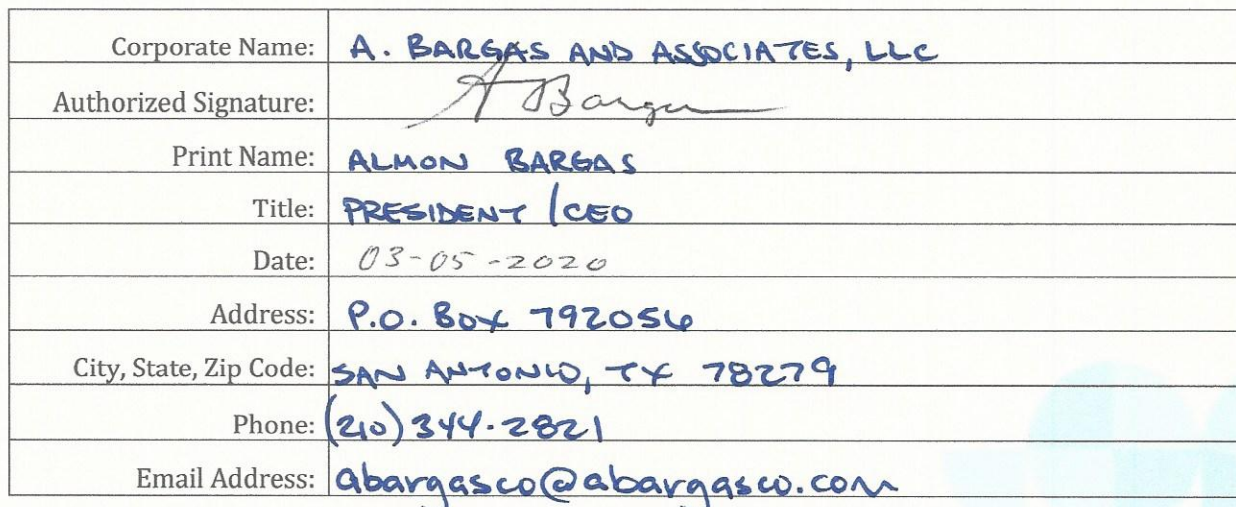 Corporate Name: A. BARGAS AND ASSOCIATES, LLC
Authorized Signature: A Bargas
Print Name: ALMON BARGAS
Title: PRESIDENT / CEO
Date: 03-05-2020
Address: P.O. Box 792056
City, State, Zip Code: SAN ANTONIO, TX 78279
Phone: (210) 344-2821
Email Address: abargasco@abargasco.com